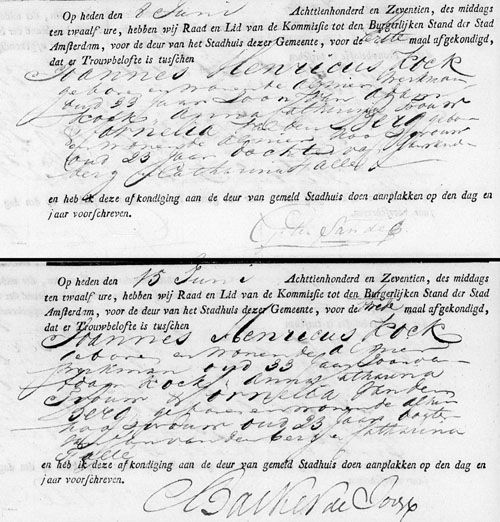 Op heden den 8 Juni Achttienhonderd en Zeventien, des middags
ten twaalf ure, hebben wij Raad en Lid van de Kommissie tot den Burgerlijken Stand der Stad
Amsterdam, voor de deur van het Stadhuis dezer Gemeente, voor de Eerste maal afgekondigd,
dat er Trouwbelofte is tusschen
Joannes Henricus Kock
oud 33 jaar Zoon van Adam
Kock & Anna Catharina
Cornelia van den Berg
en wonende alhier
oud 23 jaar dochter van
Berg & Catharina Falle
en heb ik deze afkondiging aan de deur van gemeld Stadhuis doen aanplakken op den dag en
jaar voorschreven.
Op heden den 15 Juni Achttienhonderd en Zeventien, des middags
ten twaalf ure, hebben wij Raad en Lid van de Kommissie tot den Burgerlijken Stand der Stad
Amsterdam, voor de deur van het Stadhuis dezer Gemeente, voor de 2de maal afgekondigd,
dat er Trouwbelofte is tusschen
Joannes Henricus Kock
geboren en wonende
werkman oud 33 jaar Zoon van
Adam Kock & Anna Catharina
& Cornelia van den
Berg geboren en wonende alhier
oud 23 jaar dochter
van den Berg & Catharina
Falle
en heb ik deze afkondiging aan de deur van gemeld Stadhuis doen aanplakken op den dag en
jaar voorschreven.